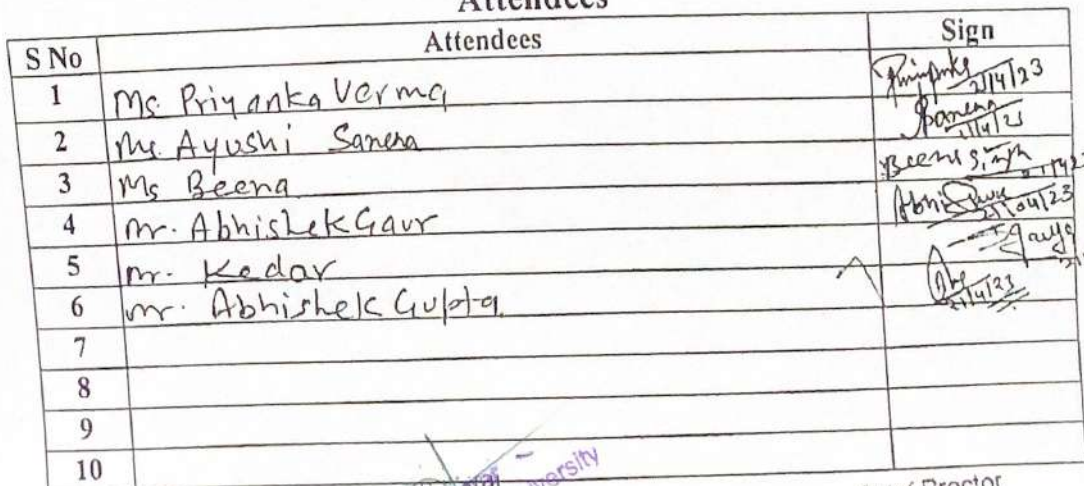 Attendees
S No Attendees Sign
1 Ms. Priyanka Verma Priyanka 21/4/23
2 Ms. Ayushi Sanena Sanena 21/4/23
3 Ms Beena Beena Singh
4 Mr. Abhishek Gaur 21/04/23
5 Mr. Kedar
6 Mr. Abhishek Gupta 21/4/23
7
8
9
10
Proctor